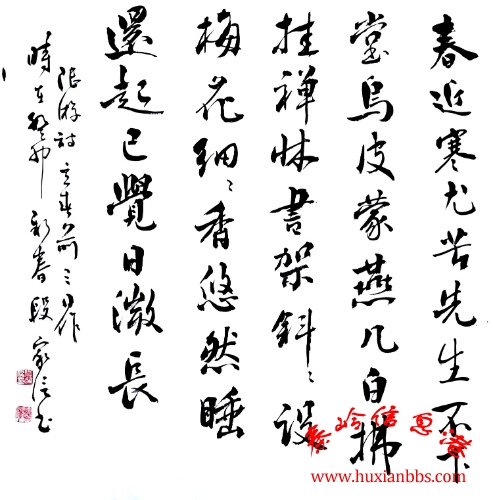 春近寒尤苦先生不下
堂烏皮蒙燕几白拂
挂禪牀書架斜〻設
梅花細〻香悠然睡
還起已覺日微長
陸游詩立春前三日作
時在癸卯新春段家信書
www.huxianbbs.com